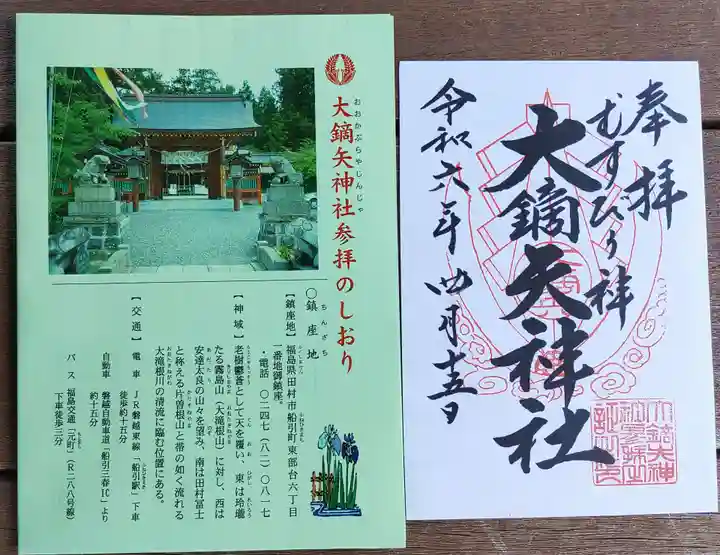 大鏑矢神社参拝のしおり
おおかぶらやじんじゃ
○鎮座地
ちんざち
【鎮座地】福島県田村市船引町東部台六丁目
ふねひきまち
一番地御鎮座
・電話 〇二四七(八二)〇八一七
【神域】老樹鬱蒼として天を覆い 東は玲瓏
たる霧島山(大滝根山)に対し、西は
安達太良の山々を望み、南は田村冨士
と称える片曽根山と帯の如く流れる
大滝根川の清流に臨む位置にある。
【交通】電車 JR磐越東線「船引駅」下車
徒歩約十五分
自動車 磐越自動車道「船引三春IC」より
約十五分
バス 福島交通「元町」(R二八八号線)
下車徒歩三分
奉拝
むすびの神
大鏑矢神社
令和六年四月十五日